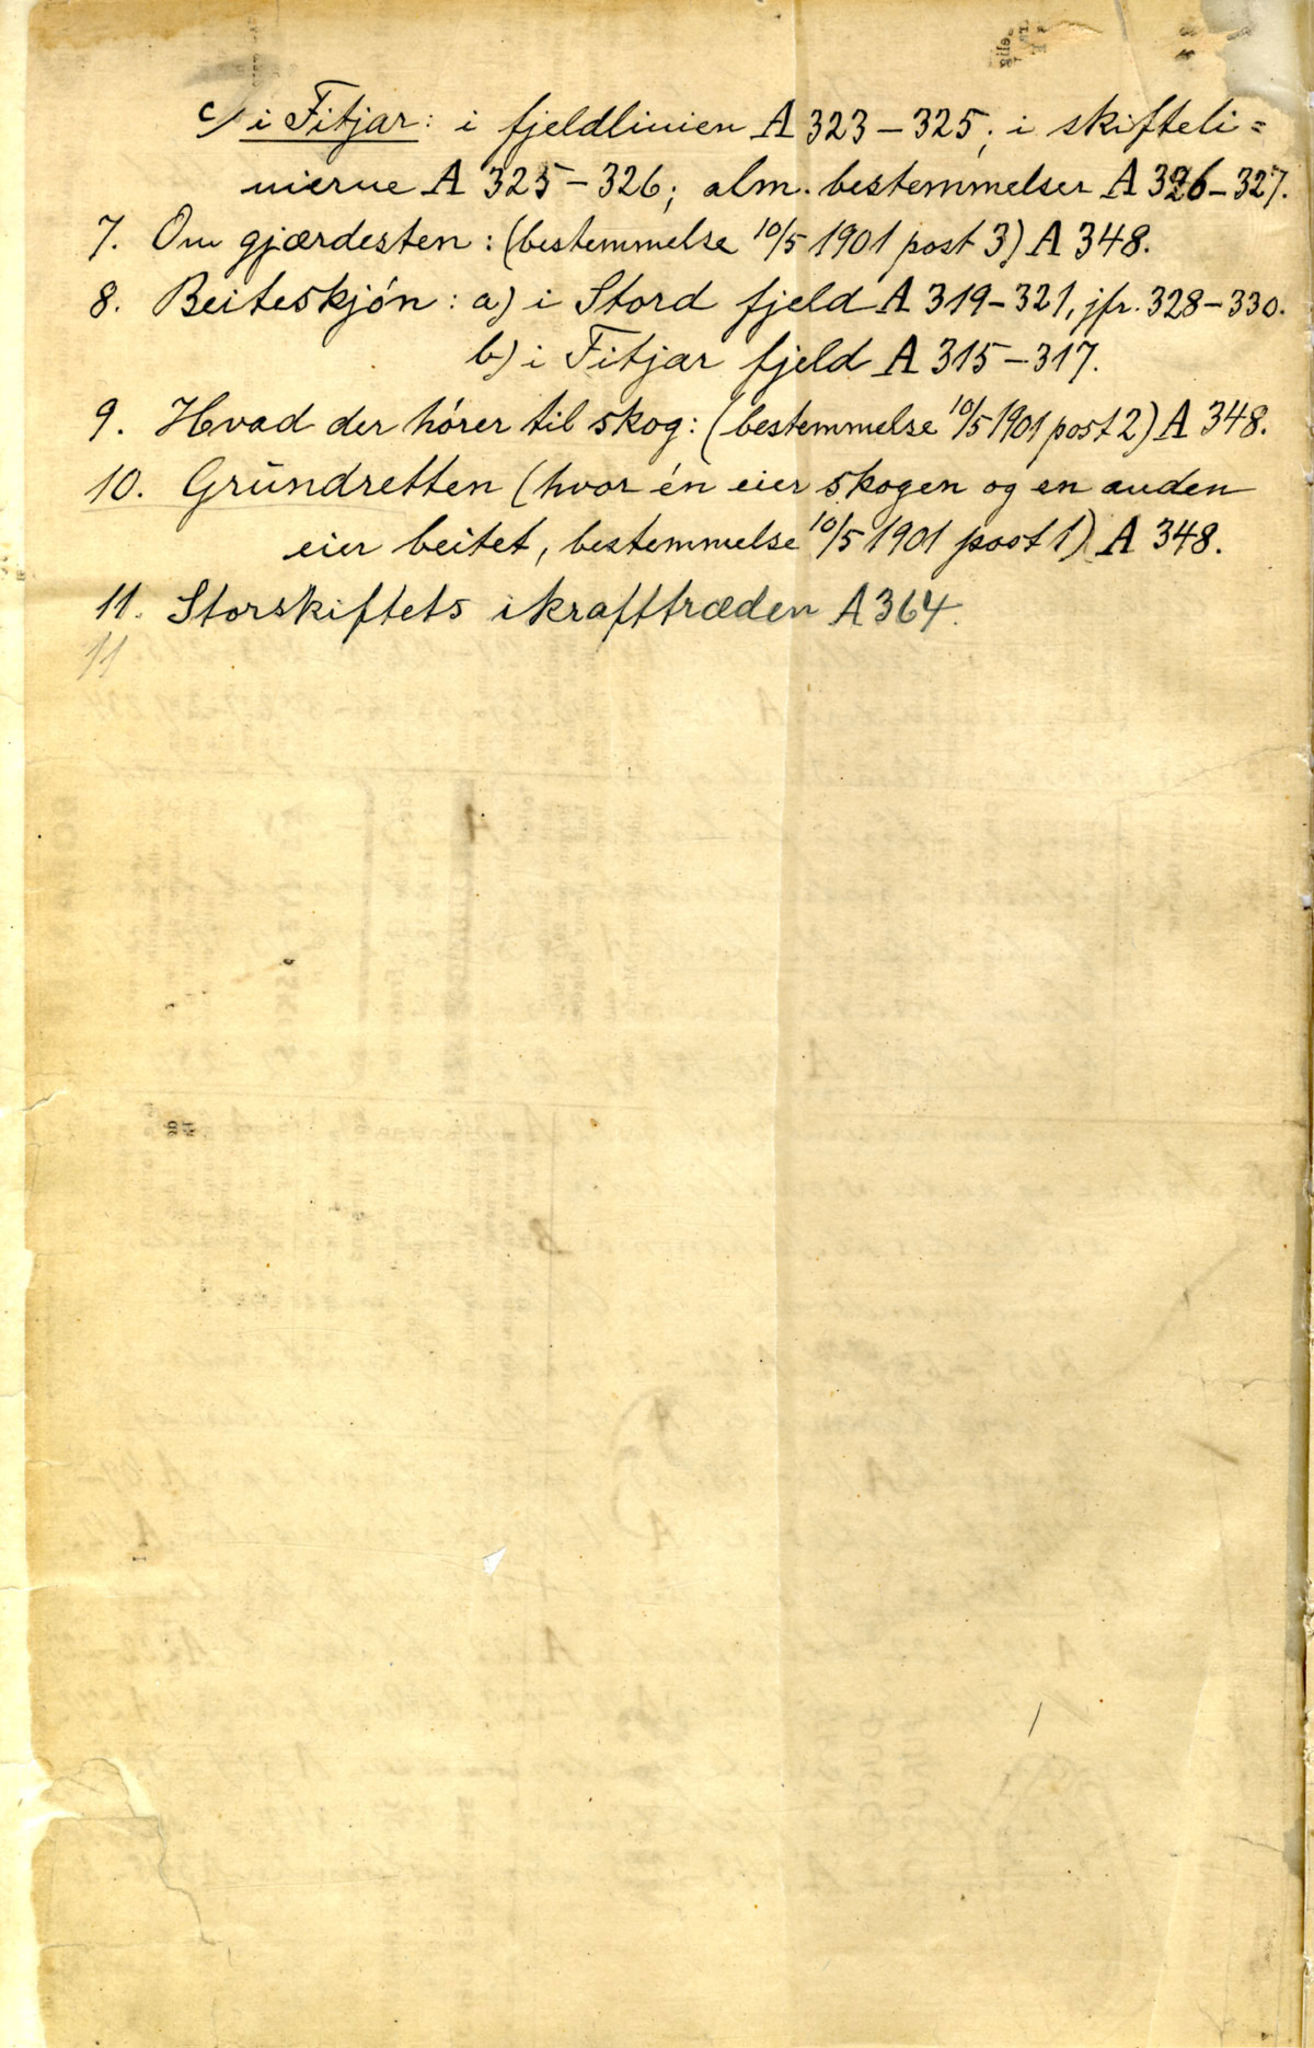 c) i Fitjar: i fjeldlinien A 323–325; i skifteli=
nierne A 325–326; alm. bestemmelser A 326–327.
7. Om gjærdesten: (bestemmelse 10/5 1901 post 3) A 348.
8. Beiteskjón: a) i Stord fjeld A 319–321, jfr. 328–330.
b) i Fitjar fjeld A 315–317.
9. Hvad der hórer til skog: (bestemmelse 10/5 1901 post 2) A 348.
10. Grūndretten (hvor én eier skogen og en anden
eier beitet, bestemmelse 10/5 1901 post 1) A 348.
11. Storskiftets ikrafttræden A 364.
11